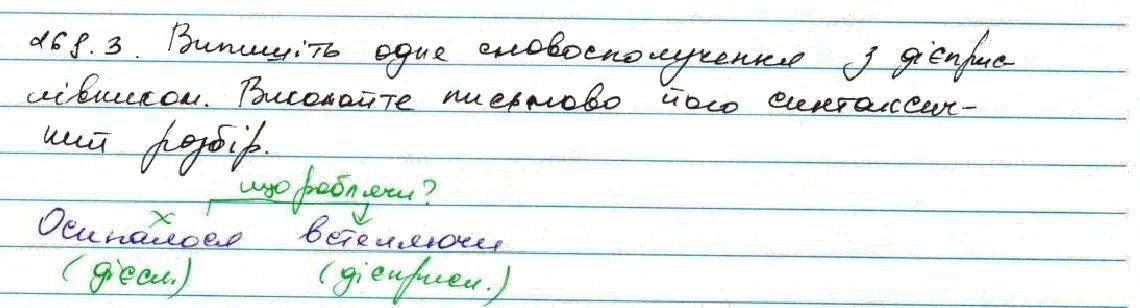 268.3. Випишіть одне словосполучення з дієприс
лівником. Виконайте письмово його синтаксич-
ний розбір.
що роблячи?
х
Осипалося встеляючи
(дієсл.) (дієприсл.)